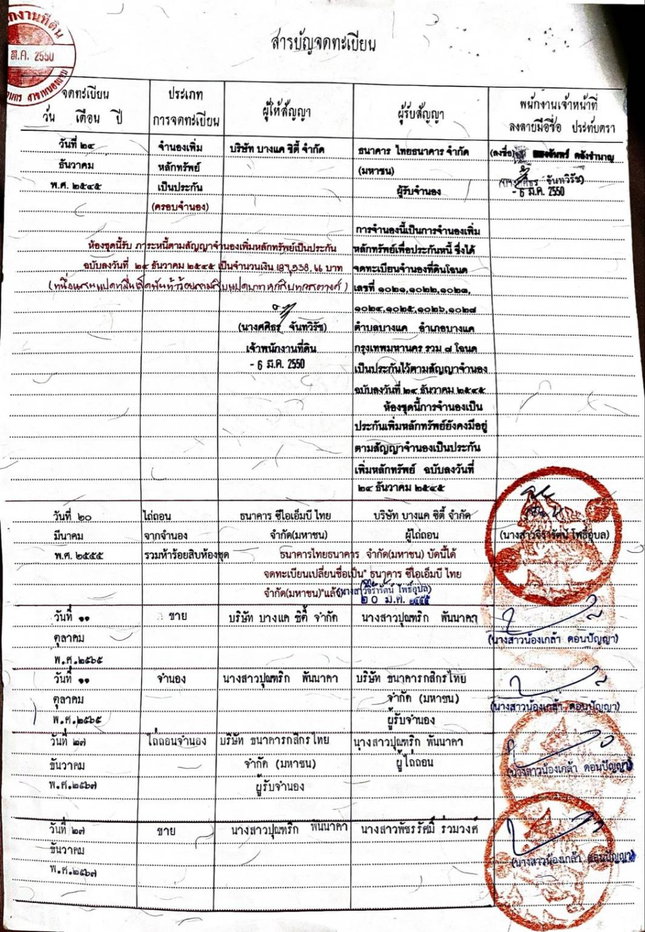 สารบัญจดทะเบียน
จดทะเบียน
วัน เดือน ปี
ประเภท
การจดทะเบียน
ผู้ให้สัญญา
ผู้รับสัญญา
พนักงานเจ้าหน้าที่
ลงลายมือชื่อ ประทับตรา
วันที่ ๒๔
ธันวาคม
พ.ศ. ๒๕๔๕
จำนองเพิ่ม
หลักทรัพย์
เป็นประกัน
(ครอบจำนอง)
บริษัท บางแค ซิตี้ จำกัด
ธนาคาร ไทยธนาคาร จำกัด
(มหาชน)
ผู้รับจำนอง
(ลงชื่อ)
- 6 ม.ค. 2550
ห้องชุดนี้รับ ภาระหนี้ตามสัญญาจำนองเพิ่มหลักทรัพย์เป็นประกัน
ฉบับลงวันที่ ๒๔ ธันวาคม ๒๕๔๕ เป็นจำนวนเงิน บาท
(นางศศิธร จันทวิรัช)
เจ้าพนักงานที่ดิน
- 6 ม.ค. 2550
การจำนองนี้เป็นการจำนองเพิ่ม
หลักทรัพย์เพื่อประกันหนี้ ซึ่งได้
จดทะเบียนจำนองที่ดินโฉนด
เลขที่ ๑๐๒๑,๑๐๒๒,๑๐๒๓,
๑๐๒๔,๑๐๒๕,๑๐๒๖,๑๐๒๘
ตำบลบางแค อำเภอบางแค
กรุงเทพมหานคร รวม ๗ โฉนด
เป็นประกันไว้ตามสัญญาจำนอง
ฉบับลงวันที่ ๒๔ ธันวาคม ๒๕๔๕
ห้องชุดนี้การจำนองเป็น
ประกันเพิ่มหลักทรัพย์ยังคงมีอยู่
ตามสัญญาจำนองเป็นประกัน
เพิ่มหลักทรัพย์ ฉบับลงวันที่
๒๔ ธันวาคม ๒๕๔๕
วันที่ ๒๐
มีนาคม
พ.ศ. ๒๕๕๕
ไถ่ถอน
จากจำนอง
รวมห้าร้อยสิบห้องชุด
ธนาคาร ซีไอเอ็มบี ไทย
จำกัด(มหาชน)
บริษัท บางแค ซิตี้ จำกัด
ผู้ไถ่ถอน
ธนาคารไทยธนาคาร จำกัด(มหาชน) บัดนี้ได้
จดทะเบียนเปลี่ยนชื่อเป็น" ธนาคาร ซีไอเอ็มบี ไทย
จำกัด(มหาชน)"แล้ว
(นางสาวจิรารัตน์ โพธิ์อุบล)
วันที่ ๑๑
ตุลาคม
พ.ศ.๒๕๖๕
ขาย
บริษัท บางแค ซิตี้ จำกัด
นางสาวปุณฑริก พันนาคา
(นางสาวน้องเกล้า ดอนปัญญา)
วันที่ ๑๑
ตุลาคม
พ.ศ.๒๕๖๕
จำนอง
นางสาวปุณฑริก พันนาคา
บริษัท ธนาคารกสิกรไทย
จำกัด (มหาชน)
ผู้รับจำนอง
(นางสาวน้องเกล้า ดอนปัญญา)
วันที่ ๒๗
ธันวาคม
พ.ศ.๒๕๖๗
ไถ่ถอนจำนอง
บริษัท ธนาคารกสิกรไทย
จำกัด (มหาชน)
ผู้รับจำนอง
นางสาวปุณฑริก พันนาคา
ผู้ไถ่ถอน
(นางสาวน้องเกล้า ดอนปัญญา)
วันที่ ๒๗
ธันวาคม
พ.ศ.๒๕๖๗
ขาย
นางสาวปุณฑริก พันนาคา
นางสาวพัชรรัศมิ์ ร่วมวงศ์
(นางสาวน้องเกล้า ดอนปัญญา)